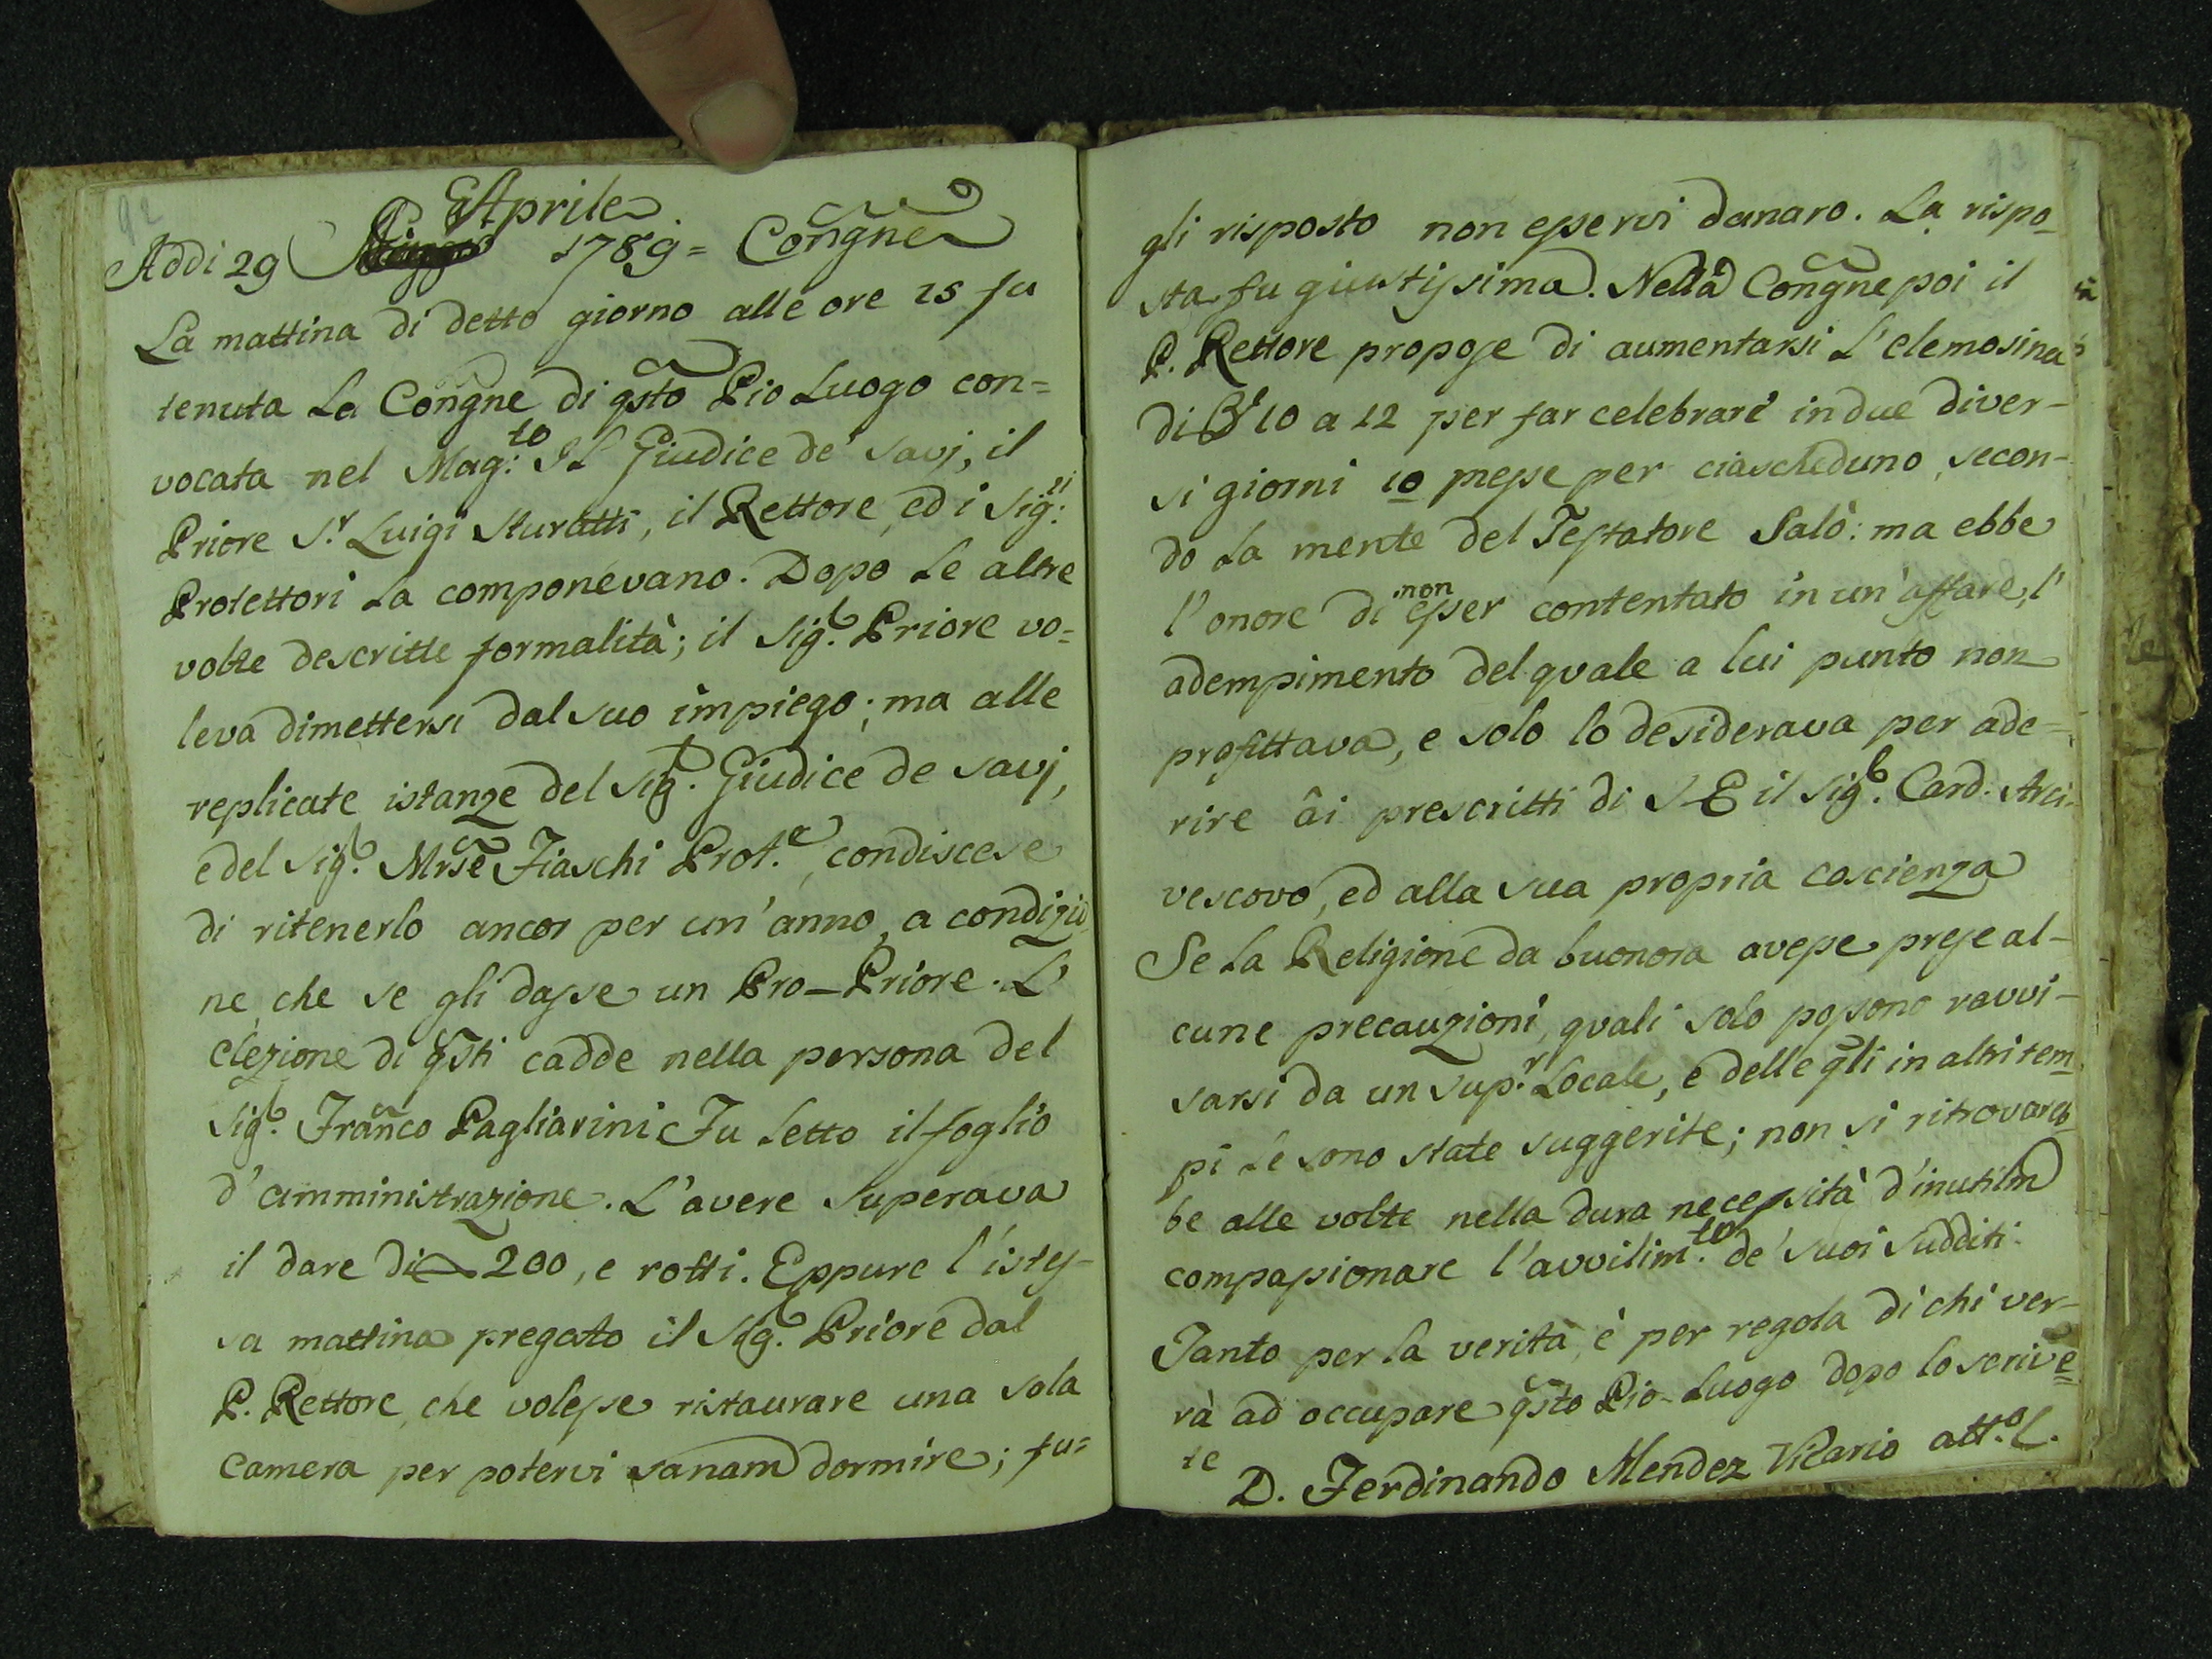 92
Aprile
Addi 29 1789 = Congne
La mattina di detto giorno alle ore 15 fu
tenuta La Congne di qsto Pio Luogo con=
vocata nel Mag:to Il Giudice de' Savj, il
Priore S.r Luigi Muratti, il Rettore, ed i Sig:ri
Protettori La componevano. Dopo Le altre
volte descritte formalità; il Sig.r Priore vo=
leva dimettersi dal suo impiego; ma alle
replicate istanze del Sig.r Giudice de Savj,
e del Sig.r Mrse Fiaschi Prot.e, condiscese
di ritenerlo ancor per un' anno, a condizio
ne, che se gli dasse un Pro-Priore. L'
elezione di qsti cadde nella persona del
Sig.r Franco Pagliarini Fu Letto il foglio
d' amministrazione. L'avere superava
il dare di 200, e rotti. Eppure l'istes-
sa mattina pregato il Sig.r Priore dal
P. Rettore, che volesse ristaurare una sola
Camera per potervi sanam dormire; fu=
93
gli risposto non esservi danaro. La rispo
sta fu giustissima. Nella Congne poi il
P. Rettore propose di aumentarsi L'elemosina
di 10 a 12 per far celebrare in due diver-
si giorni 10 messe per ciascheduno, secon-
do La mente del Testatore Salò: ma ebbe
l'onore di non esser contentato in un'affare, l'
adempimento del quale a lui punto non
profittava, e solo lo desiderava per ade=
rire ai prescritti di S E il Sig.r Card. Arci-
vescovo, ed alla sua propria coscienza
Se La Religione da buonora avesse prese al-
cune precauzioni, quali solo possono ravvi-
sarsi da un Sup.r Locale, e delle qli in altri tem
pi Le sono state suggerite; non si ritrovareb
be alle volte nella dura necessità d'inutilm
compassionare l'avvilim.to de' suoi sudditi.
Tanto per la verità, e per regola di chi ver-
rà ad occupare qsto Pio-Luogo dopo lo scrive=
te
D. Ferdinando Mendez Vicario att.e